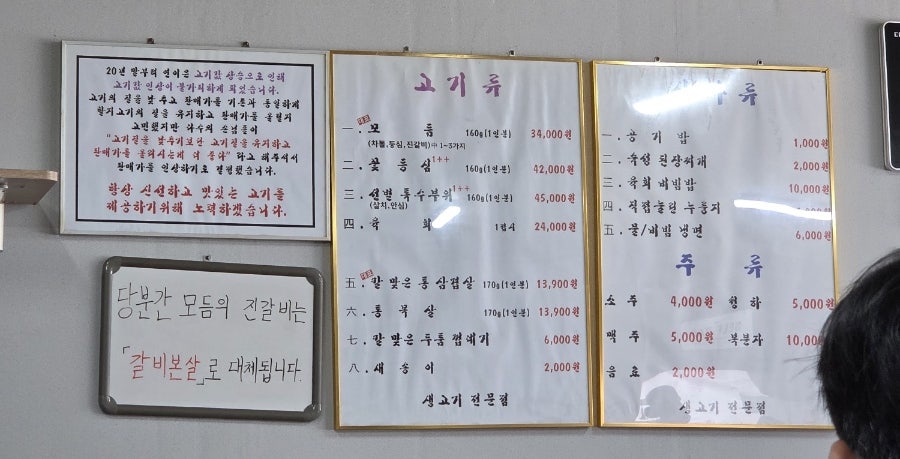 20년 말부터 연이은 고기값 상승으로 인해
고기값 인상이 불가피하게 되었습니다.
고기의 질을 낮추고 판매가를 기존과 동일하게
할지 고기의 질을 유지하고 판매가를 올릴지
고민했지만 다수의 손님들이
"고기질을 낮추기보단 고기질을 유지하고
판매가를 올리시는데 더 좋다" 라고 해주셔서
판매가를 인상하기로 결정했습니다.
항상 신선하고 맛있는 고기를
제공하기위해 노력하겠습니다.
당분간 모듬의 진갈비는
「갈비본살」로 대체됩니다.
고기류
一. 모듬 160g(1인분) 34,000원
(차돌,등심,진갈비)中 1~3가지
二. 꽃등심1++ 160g(1인분) 42,000원
三. 선별 특수부위1++ 160g(1인분) 45,000원
(살치,안심)
四. 육회 1접시 24,000원
五. 칼 맞은 통 삼겹살 170g(1인분) 13,900원
六. 통 목살 170g(1인분) 13,900원
七. 칼 맞은 두툼 껍데기 6,000원
八. 새송이 2,000원
생고기 전문점
류
一. 공기밥 1,000원
二. 숙성 된장찌개 2,000원
三. 육회 비빔밥 10,000원
四. 직접눌린 누룽지
五. 물/비빔 냉면 6,000원
주류
소주 4,000원 청하 5,000원
맥주 5,000원 복분자 10,000
음료 2,000원
생고기 전문점